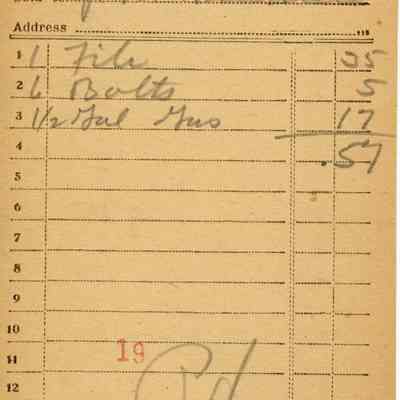 Address
1 1 File 35
2 6 Bolts 5
3 1/2 Gal Gas 17
4 .57
5
6
7
8
9
10
11 19
12 Pd